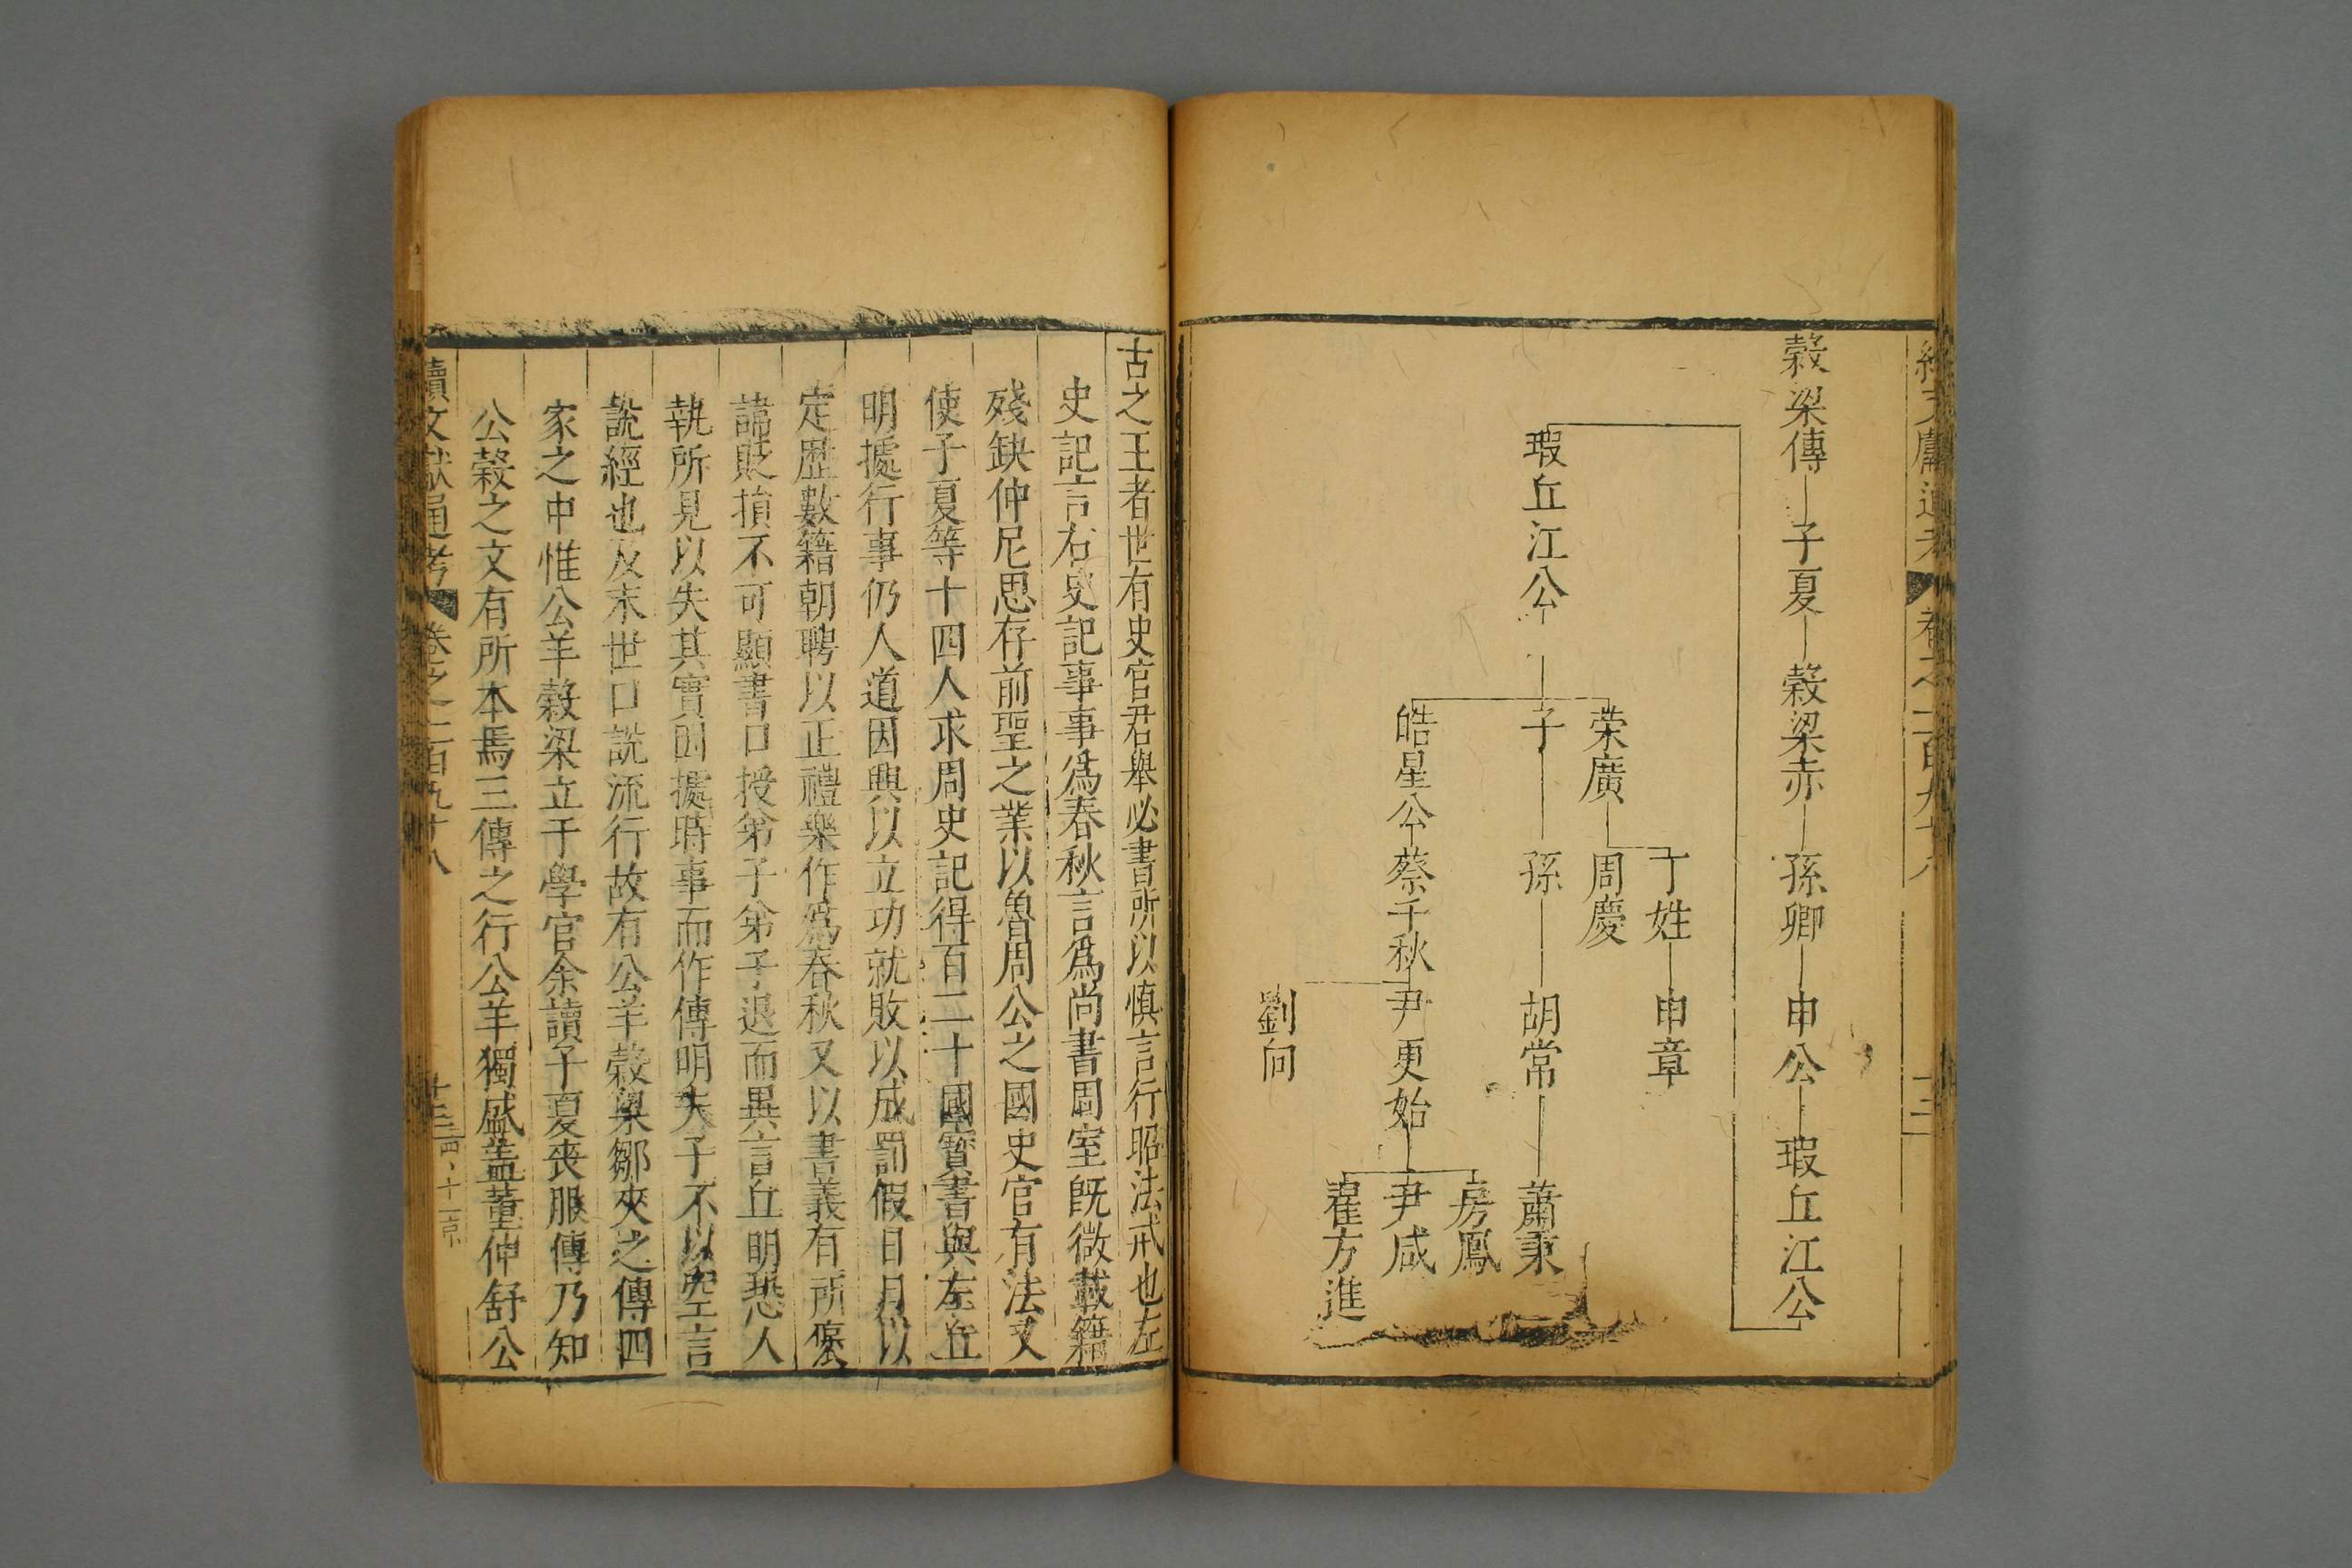 穀梁傳 子夏 穀梁赤 孫卿 申公 瑕丘江公
丁姓 申章
榮廣 周慶
瑕丘江公 子 孫 胡常 蕭秉
房鳳
皓星公 蔡千秋 尹更始 尹咸
翟方進
劉向
古之王者世有史官君舉必書所以慎言行昭法戒也左
史記言右史記事事爲春秋言爲尚書周室旣微載籍
殘缺仲尼思存前聖之業以魯周公之國史官有法又
使子夏等十四人求周史記得百二十國寶書與左丘
明據行事仍人道因興以立功就敗以成罰假日月以
定歷數籍朝聘以正禮樂作爲春秋又以書義有所褒
諱貶損不可顯書口授弟子弟子退而異言丘明恐人
執所見以失其實因據時事而作傳明夫子不以空言
說經也及末世口說流行故有公羊穀梁鄒夾之傳四
家之中惟公羊穀梁立于學官余讀子夏喪服傳乃知
公穀之文有所本焉三傳之行公羊獨盛蓋董仲舒公
續文獻通考 卷之一百九十八 十三